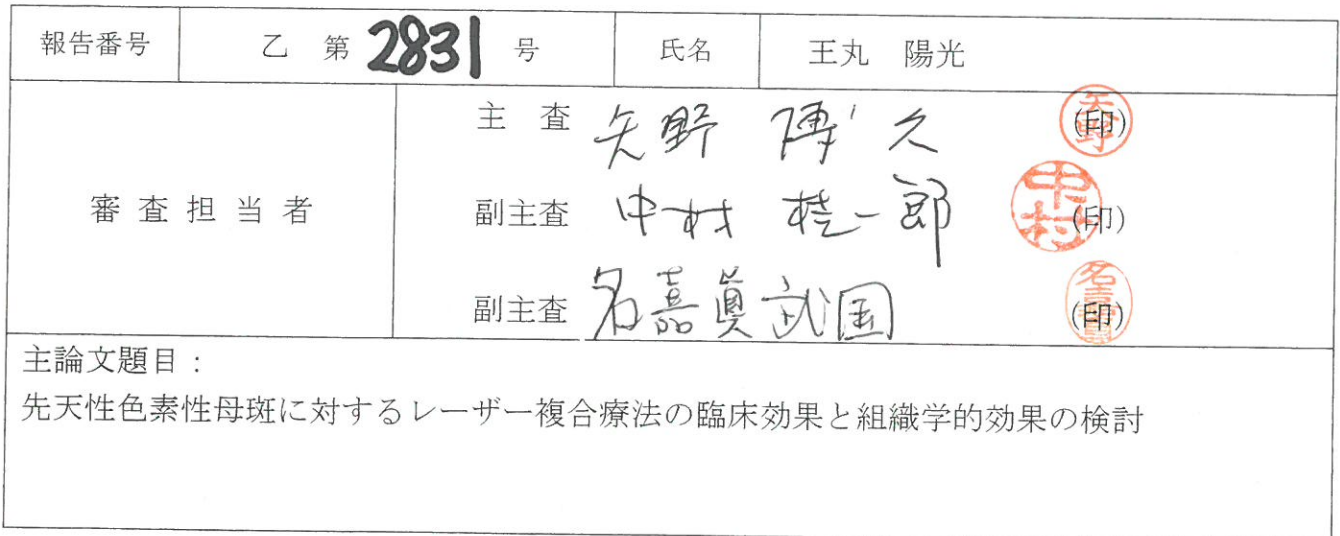 報告番号 乙 第 2831 号 氏名 王丸 陽光
主 査 矢野 博久 (印) 矢野
審査担当者 副主査 中村 桂一郎 (印) 中村
副主査 名嘉眞武国 (印)
主論文題目：
先天性色素性母斑に対するレーザー複合療法の臨床効果と組織学的効果の検討